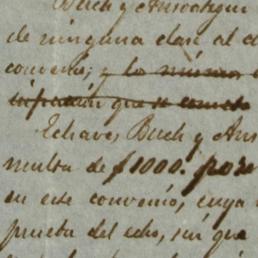 Buch y Ansoategui
de ninguna clase al c
convenio; y lo mismo
infraccion que se cometa
Echave, Buch y Ans
multa de $1000. por
en este convenio, cuya
prueba del echo, sin que